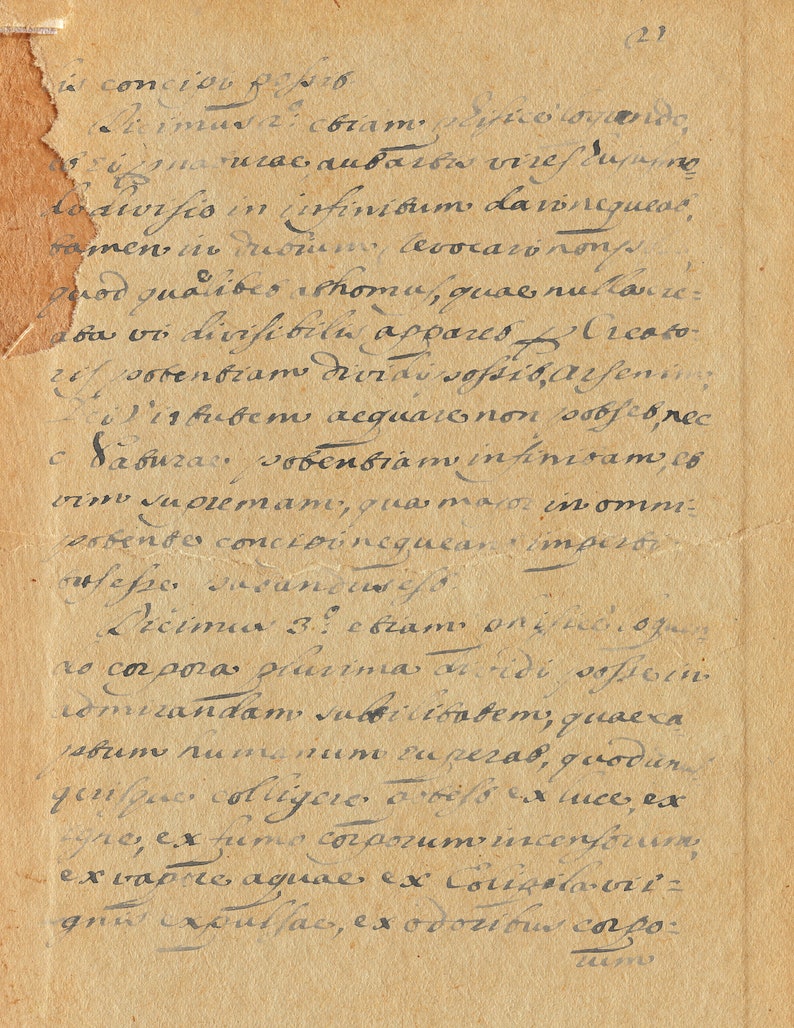 21
is concipi possit.
Dicimus 2º: etiam phisicè loquendo,
naturae aut artis vires dummo=
do divisio in infinitum dari nequeat,
tamen in dubium revocari non
quod quaelibet athomus, quae nulla cre=
ata vi divisibilis apparet p Creato-
ris potentiam dividi possit,
Dei virtutem aequare non potset, nec
Naturae potentiam infinitam, et
vim supremam, qua major in omni=
potente concipi nequeant
esse putandus est.
Dicimus 3º: etiam phisicè loquen
do corpora plurima dividi posse in
admirandam subtilitatem, quae ca
ptum humanum superat, quod unus
quisque colligere potest ex luce, ex
igne, ex fumo corporum incensorum,
ex vapore aquae ex Eolipila vi i=
gnis expulsae, ex odoribus corpo=
rum